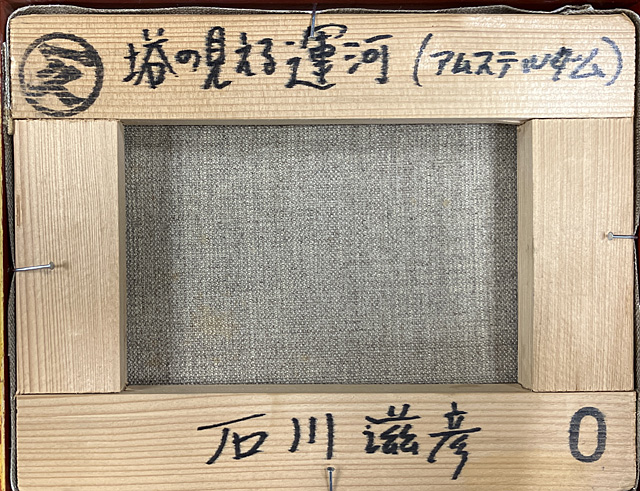 塔の見える運河(アムステルダム)
石川滋彦
0